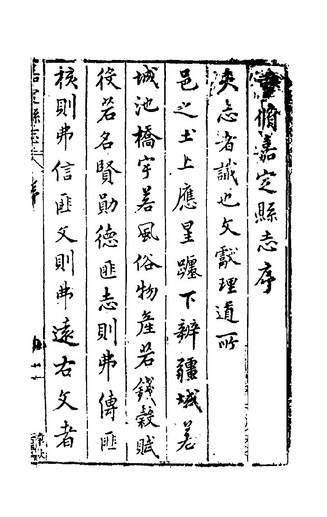 重脩嘉定縣志序
夫志者識也文獻理道所
邑之土上應星躔下辨疆域若
城池橋宇若風俗物產若錢穀賦
役若名賢勛德匪志則弗傳匪
核則弗信匪文則弗遠右文者
嘉定縣志 序